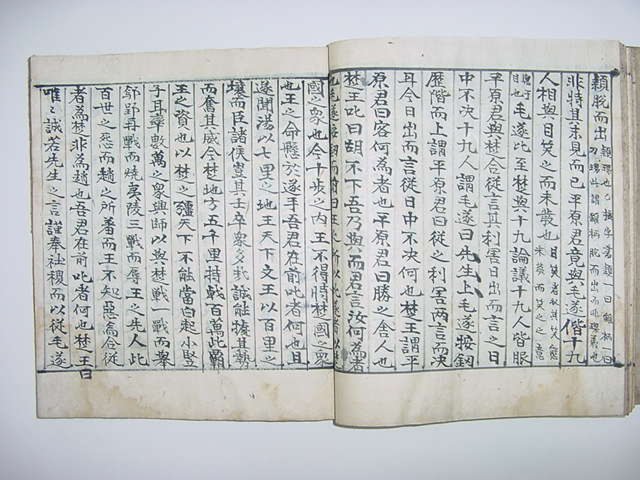 穎脫而出
非特其末見而已平原君竟與毛遂偕十九
人相與目笑之而未發也
毛遂比至楚與十九論議十九人皆服
平原君與楚合從言其利害日出而言之日
中不決十九人謂毛遂曰先生上毛遂按劍
歷階而上謂平原君曰從之利害兩言而決
耳今日出而言從日中不決何也楚王謂平
原君曰客何為者也平原君曰勝之舍人也
楚王叱曰胡不下吾乃與而君言汝何為者
也毛遂按劍而前曰王之所以叱遂者以楚
國之衆也今十步之內王不得恃楚國之衆
也王之命懸於遂手吾君在前叱者何也且
遂聞湯以七里之地王天下文王以百里之
壤而臣諸侯豈其士卒衆多哉誠能據其勢
而奮其威今楚地方五千里持戟百萬此霸
王之資也以楚之彊天下不能當白起小竪
子耳率數萬之衆興師以與楚戰一戰而舉
鄢郢再戰而燒夷陵三戰而辱王之先人此
百世之怨而趙之所羞而王不知惡焉合從
者為楚非為趙也吾君在前叱者何也楚王曰
唯〻誠若先生之言謹奉社稷而以從毛遂